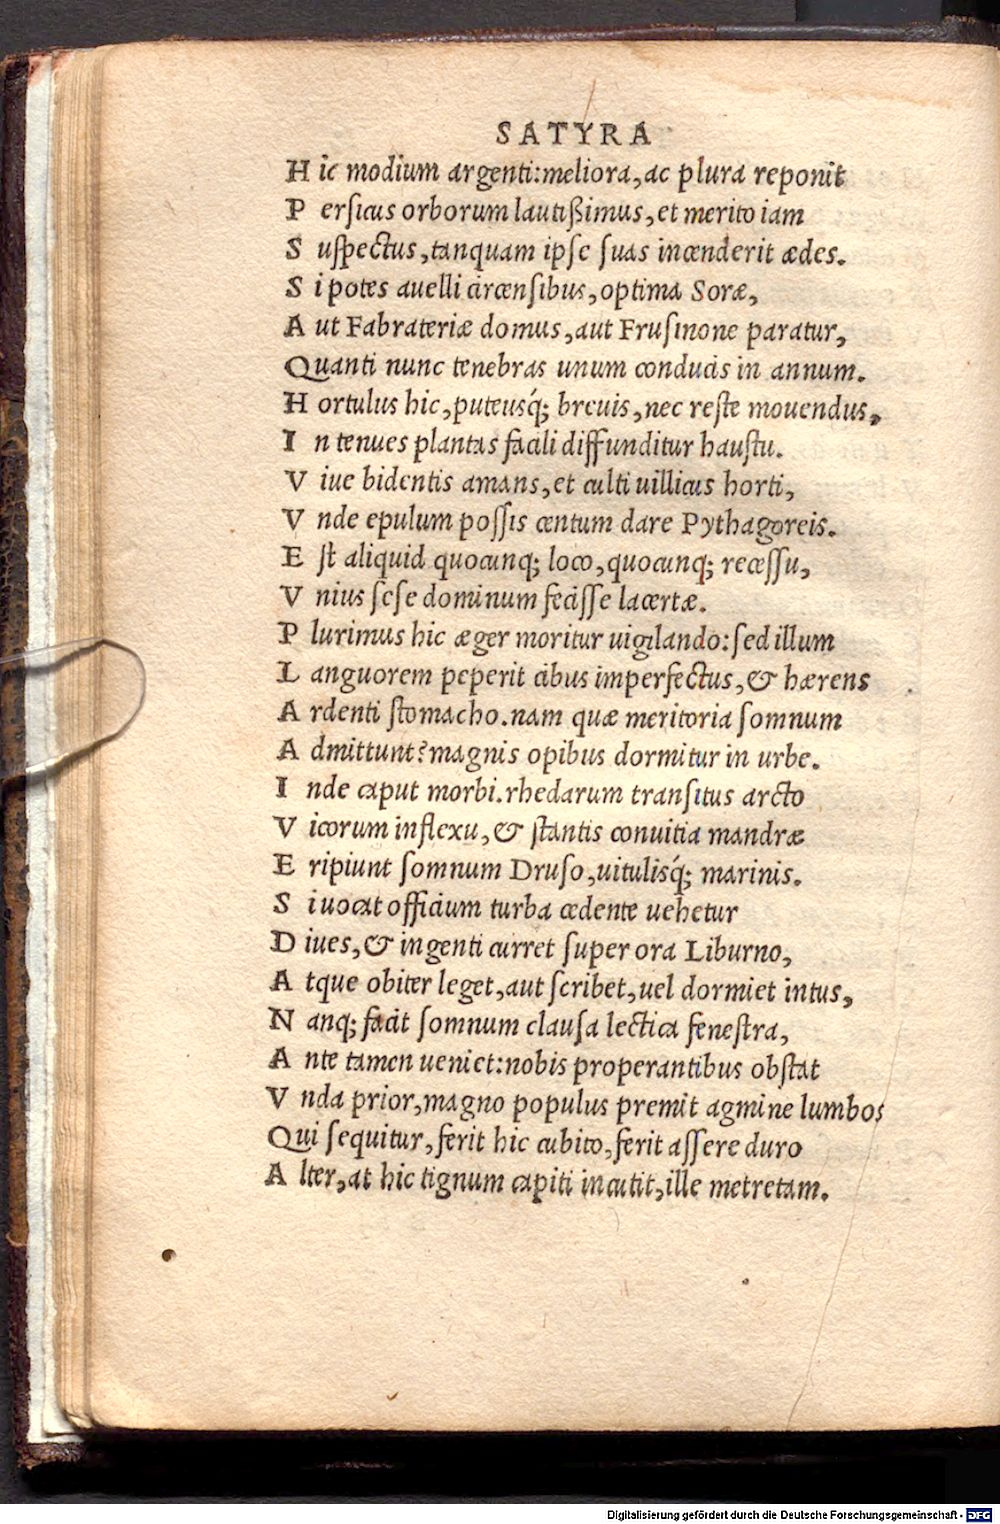 SATYRA
H ic modium argenti:meliora,ac plura reponit
P ersicus orborum lautißimus,et merito iam
S uſpectus,tanquam ipſe ſuas incenderit ædes.
S i potes auelli circenſibus,optima Soræ,
A ut Fabrateriæ domus,aut Fruſinone paratur,
Quanti nunc tenebras unum conducis in annum.
H ortulus hic,puteusq́; breuis,nec reſte mouendus,
I n tenues plantas facili diffunditur hauſtu.
V iue bidentis amans,et culti uillicus horti,
V nde epulum poſſis centum dare Pythagoreis.
E ſt aliquid quocunq; loco,quocunq; receſſu,
V nius ſeſe dominum feciſſe lacertæ.
P lurimus hic æger moritur uigilando:ſed illum
L anguorem peperit cibus imperfectus,& hærens
A rdenti ſtomacho.nam quæ meritoria ſomnum
A dmittunt?magnis opibus dormitur in urbe.
I nde caput morbi.rhedarum tranſitus arcto
V icorum inflexu,& ſtantis conuitia mandræ
E ripiunt ſomnum Druſo,uitulisq́; marinis.
S i uocat officium turba cedente uehetur
D iues,& ingenti curret ſuper ora Liburno,
A tque obiter leget,aut ſcribet,uel dormiet intus,
N anq; facit ſomnum clauſa lectica feneſtra,
A nte tamen ueniet:nobis properantibus obſtat
V nda prior,magno populus premit agmine lumbos
Qui ſequitur,ferit hic cubito,ferit aſſere duro
A lter,at hic tignum capiti incutit,ille metretam.
Digitalisierung gefördert durch die Deutsche Forschungsgemeinschaft - DFG